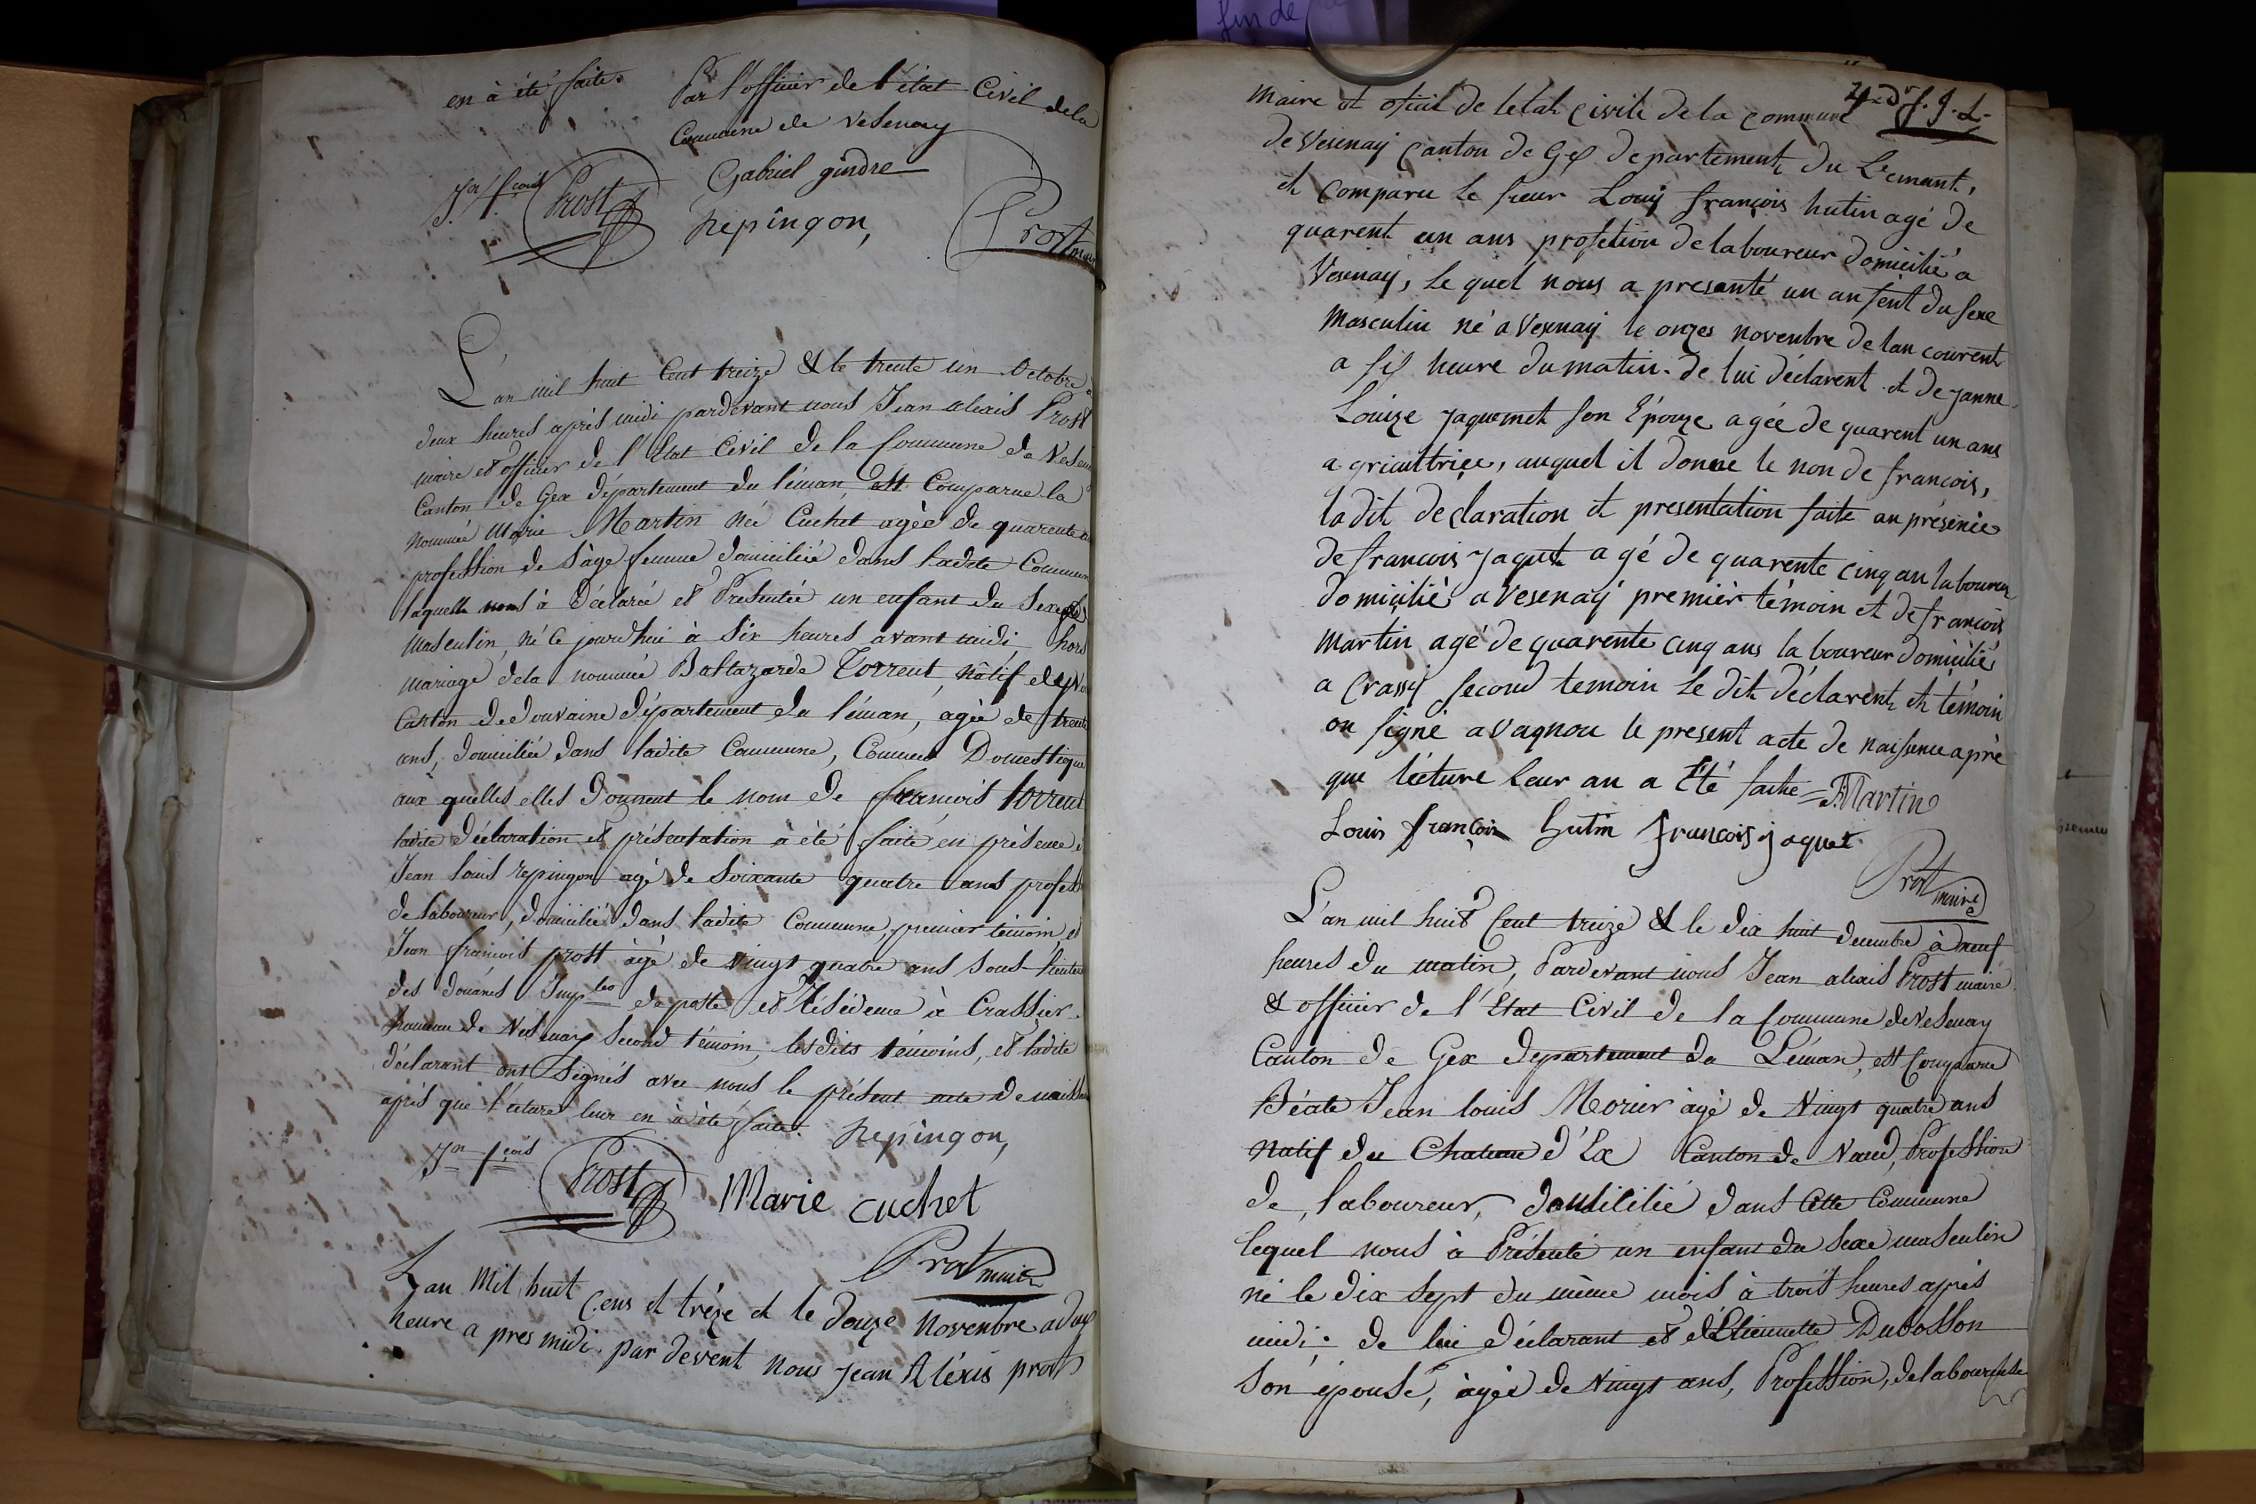 fin de
en à été faite. Par l'officier de l'état Civil dela
Commune de Vesenay
Gabriel gindre
Jn fcois Prost
repingon,
Prost maire
L'an mil huit Cent treize & le trente un Octobre à
deux heures après midi pardevant nous Jean alexis Prost
maire et officier de l'Etat Civil de la Commune de Vesenay
Canton de Gex département du léman, est Comparue la
nommée Marie Martin née Cuchet agèe de quarente
profession de Sage femme domiciliée dans ladite Commune
laquelle nous à Déclarée et Présentée un enfant du Sexe
masculin, né ce jourdhui à Six heures avant midi, hors
mariage dela nommée Baltazarde Torrent, nâtif de
Canton de douvaine département du léman, agèe de trente
ans, domiciliée dans ladite Commune, Comme Domestique
aux quelles elles donnent le nom de francois torrent
ladite Déclaration et présentation à été faite en présence
Jean louis repingon agé de Soixante quatre ans profession
de laboureur, domicilié dans ladite Commune, premier témoin, et
Jean françois prost âgé de vingt quatre ans Sous-
des douanes Imples de poste et Résidence à Crassier
hameau de Vesenay Second témoin, lesdits témoins, et ladite
déclarant ont Signés avec nous le présent acte de naissance
après que l'ecture leur en à été faite. repingon,
Jn fcois Prost
Marie cuchet
Prost maire
Lan Mil huit Cens et trèze et le douze Novenbre a dux
heure a pres midi. par devent nous jean Aléxis prost
maire et ofisié de letat civile de la commune
4me Dr f. J. L.
de Vesenay canton de Gex departement du Lémant,
et comparu le sieur Louis françois hutin agé de
quarent un ans profetion de laboureur domicilié a
Vesenay, le quel nous a presanté un anfent du sexe
masculin né a Vesenay le onzes novenbre de lan courent
a sis heure du matin. de lui déclarent et de janne
Louize jaquemet son Epouze agée de quarent un ans
agricultrice, auquel il donne le non de francois,
ladit declaration et presentation faite an présence
de francois jaquet agé de quarente cinq an laboureur
domicilié a Vesenay premièr témoin et de francois
martin agé de quarente cinq ans la boureur domicilié
a Crassy second temoin le dit déclarent et témoin
on signé avaqnou le present acte de naissence aprè
que lécture leur an a Été faite = F. Martin
Louis françois hutin francois jaquet
Prost maire
L'an mil huit Cent treize & le dix huit decembre à neuf
heures du matin, Pardevant nous Jean alexis Prost maire
& officier de l'Etat Civil de la Commune de Vesenay
Canton de Gex departement du Léman, est Comparue
Béate Jean louis Morier âgé de Vingt quatre ans
natif du Chateau d'Ex Canton de Vaud, Profession
de laboureur, domicilié dans Cette Commune
lequel nous à Présenté un enfant du Sexe masculin
né le dix Sept du même mois à trois heures après
midi: de lui déclarant et d'Etiennette Dubosson
Son épouse, agée de Vingt ans, Profession, de laboureuse